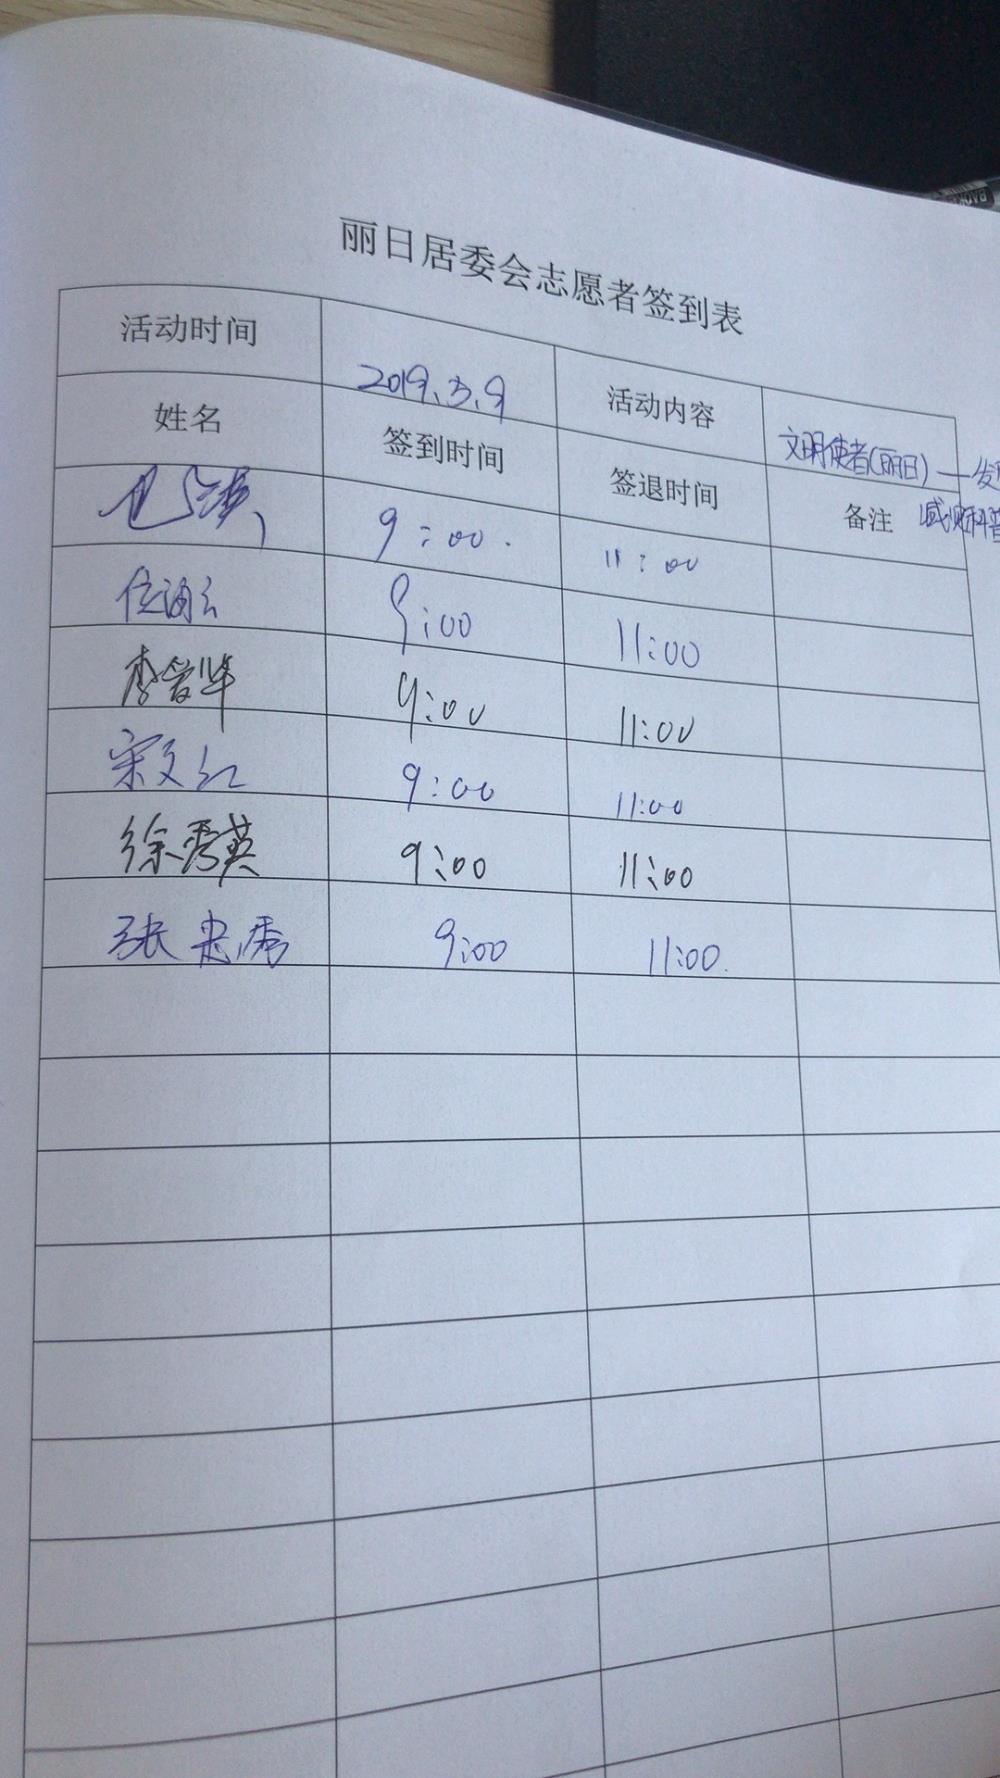 丽日居委会志愿者签到表
活动时间 2019.3.9 活动内容 文明使者(丽日)一发
减灾科普
姓名 签到时间 签退时间 备注
9:00. 11:00
9:00 11:00
李爱华 9:00 11:00
宋文红 9:00 11:00
徐秀英 9:00 11:00
张忠秀 9:00 11:00.